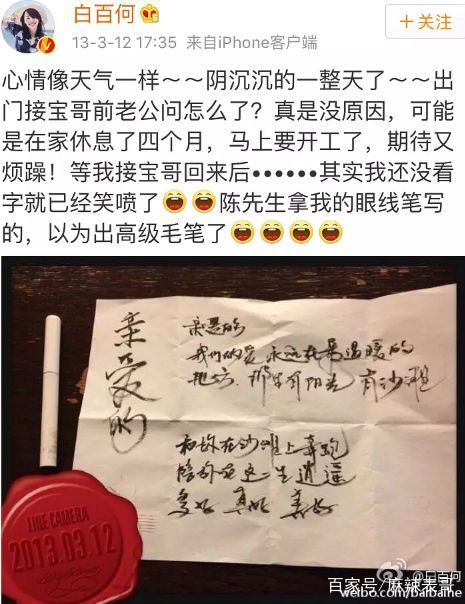 白百何
+关注
13-3-12 17:35 来自iPhone客户端
心情像天气一样～～阴沉沉的一整天了～～出
门接宝哥前老公问怎么了？真是没原因，可能
是在家休息了四个月，马上要开工了，期待又
烦躁！等我接宝哥回来后••••••其实我还没看
字就已经笑喷了😄😄陈先生拿我的眼线笔写
的，以为出高级毛笔了😄😄😄😄
亲爱的
亲爱的
我们的爱永远在最温暖的
地方，那里有阳光有沙滩
和你在沙滩上奔跑
陪你走这一生逍遥
多好 真好 美好
LINE CAMERA
2013.03.12
@白百何
百家号/麻辣表哥
weibo.com/baibaihe